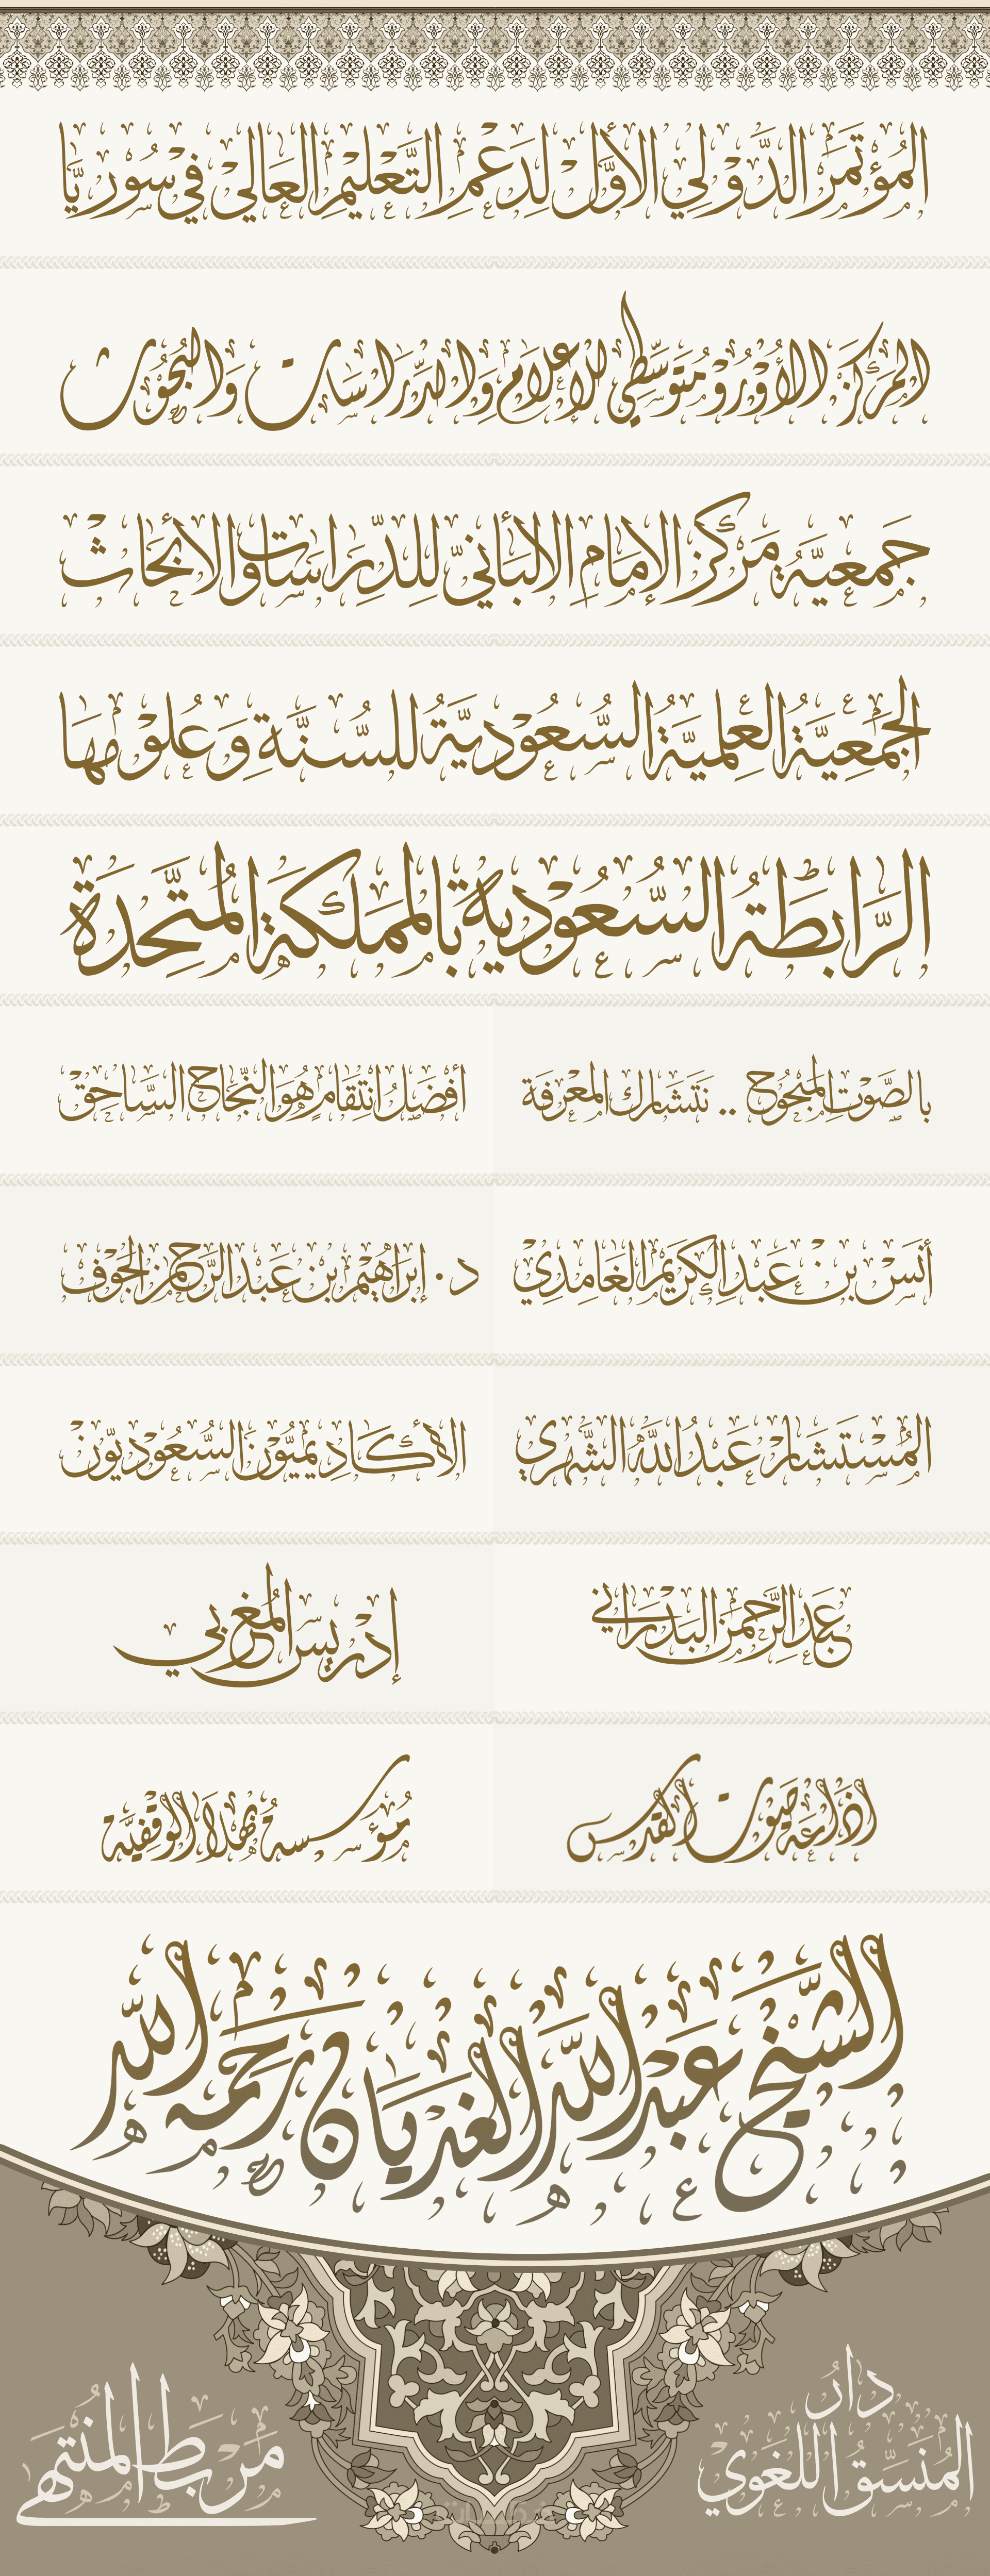 المؤتمر الدولي الأول لدعم التعليم العالي في سوريا
المركز الأورومتوسطي للإعلام والدراسات والبحوث
جمعية مركز الإمام الألباني للدراسات والأبحاث
الجمعية العلمية السعودية للسنة وعلومها
الرابطة السعودية بالمملكة المتحدة
بالصوت المبحوح .. نتشارك المعرفة
أفضل انتقام هو النجاح الساحق
أنس بن عبدالكريم الغامدي
د. إبراهيم بن عبدالرحمن الجوف
المستشار عبدالله الشهري
الأكاديميون السعوديون
عبدالرحمن البدراني
إدريس المغربي
إذاعة صوت القدس
مؤسسة بهلا الوقفية
الشيخ عبدالله الغديان رحمه الله
دار
المنسق اللغوي
مربط المنتهى